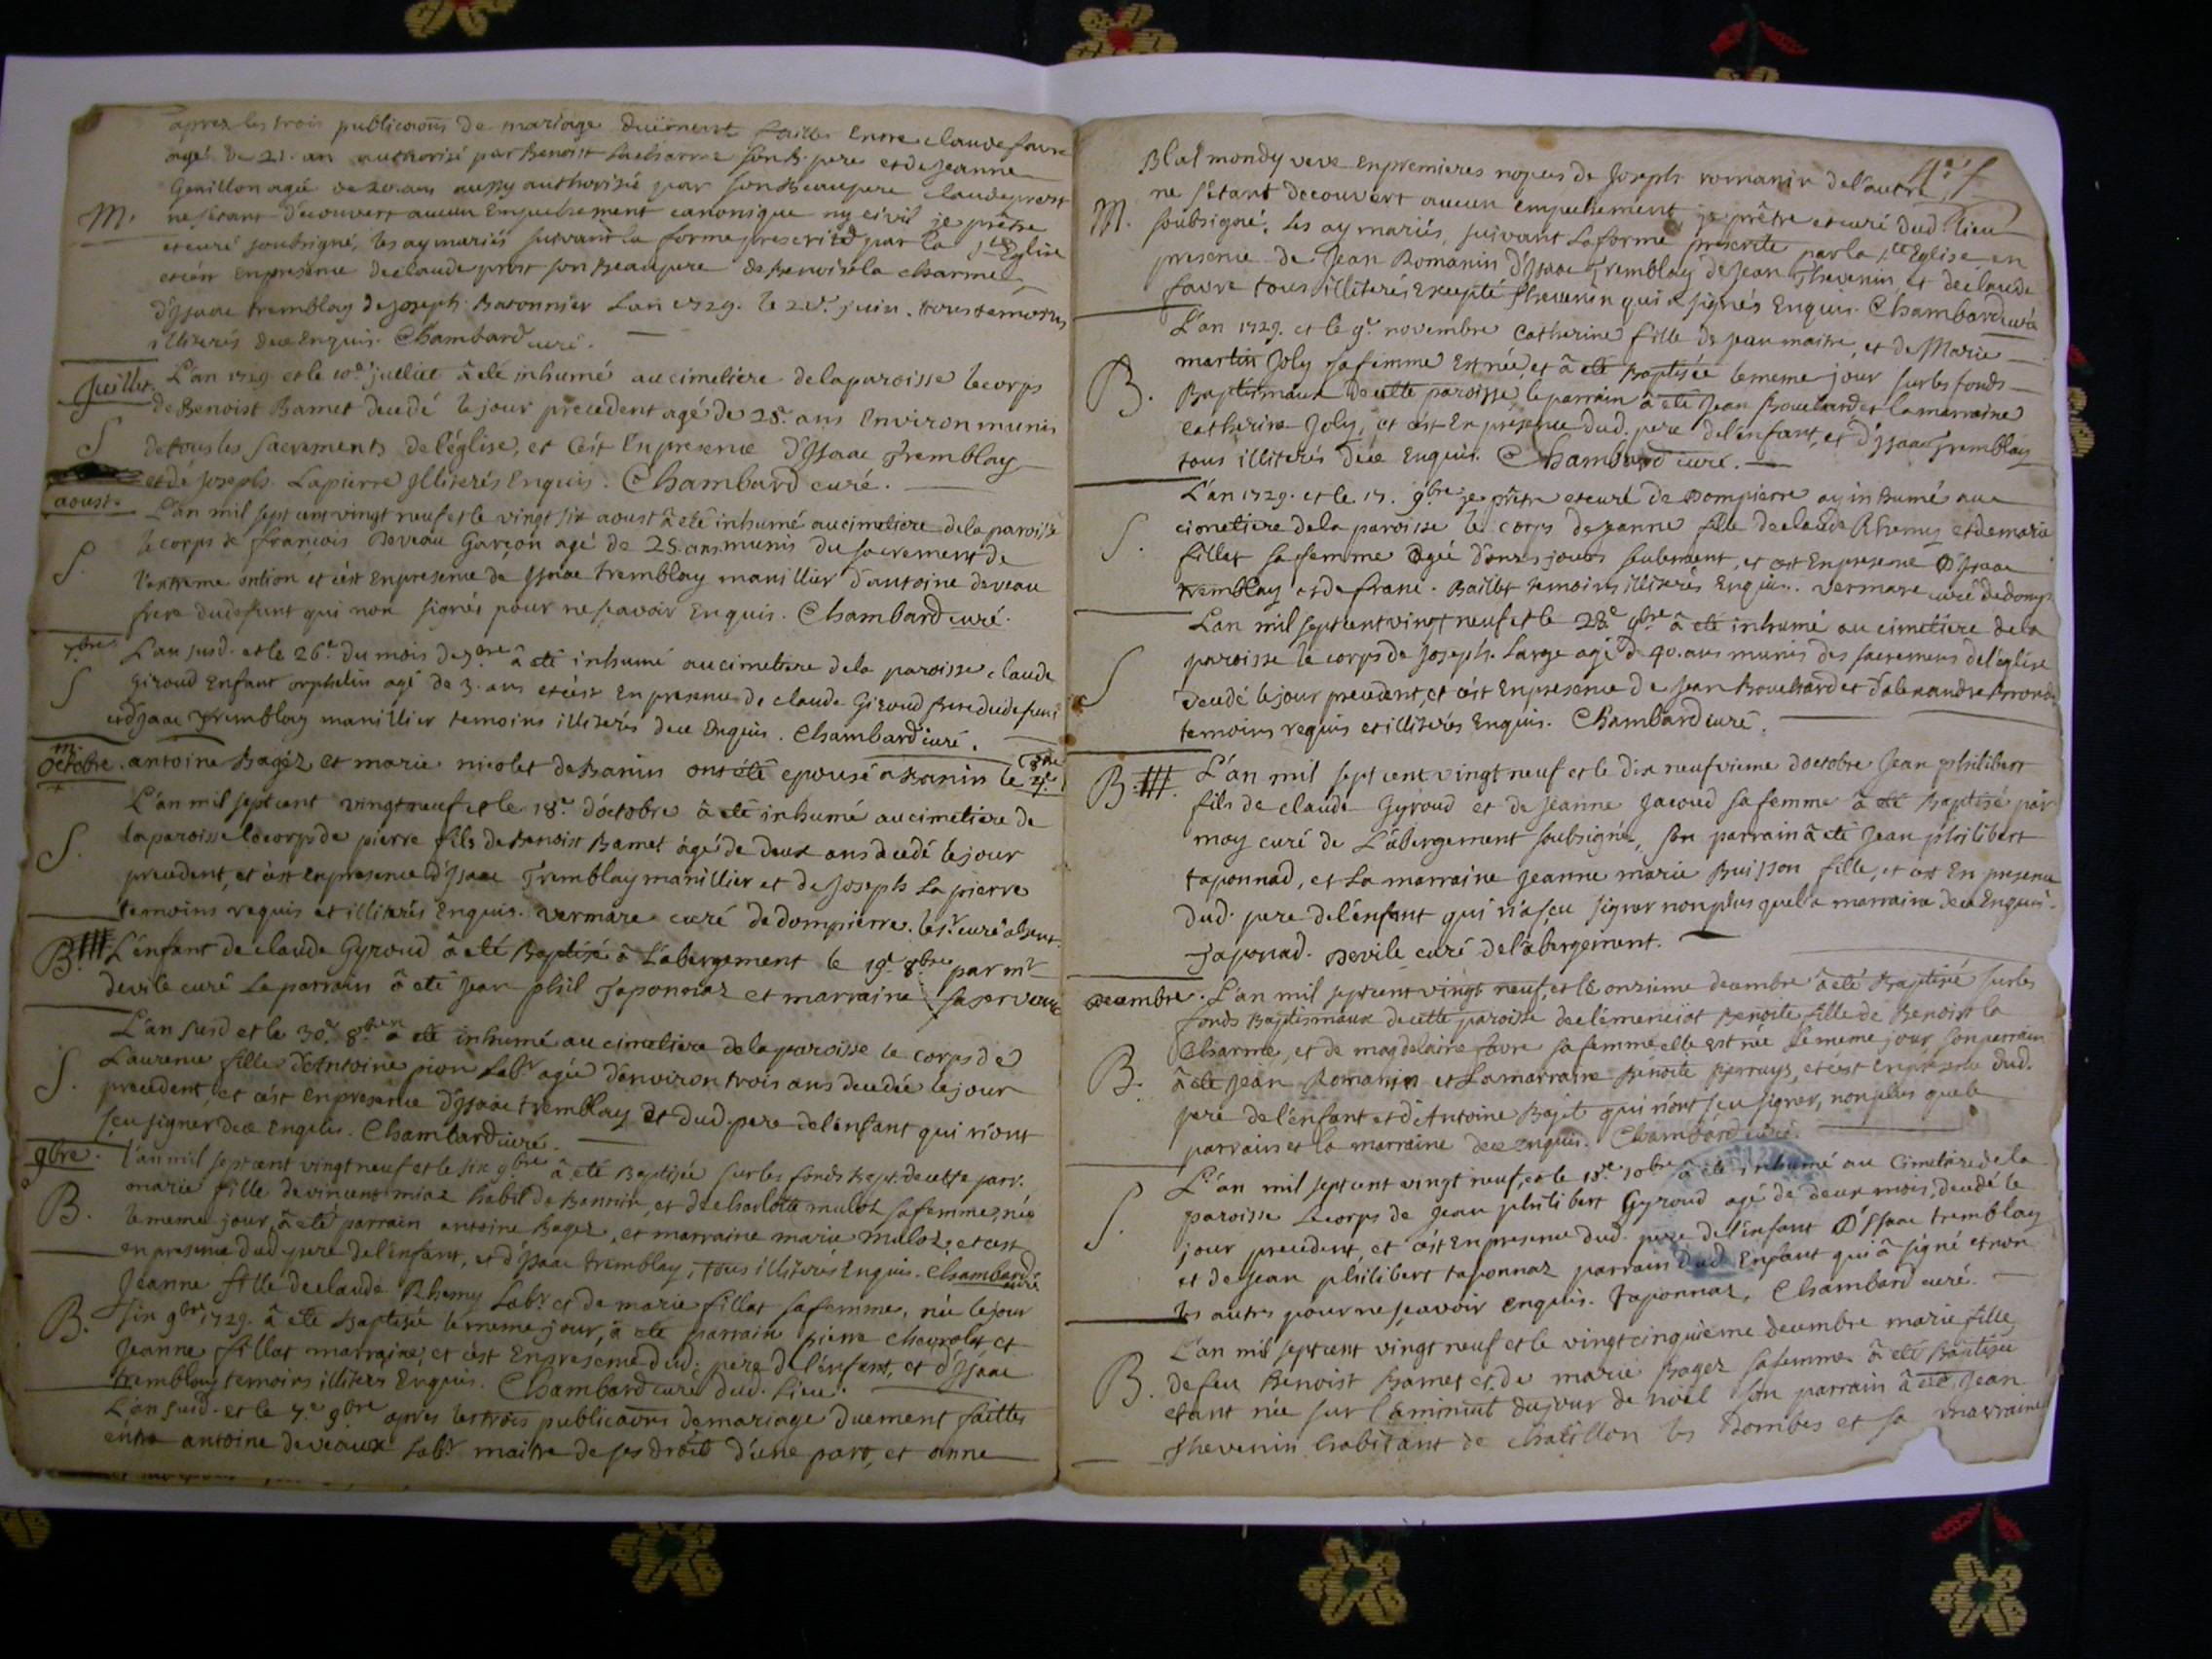 aprez les trois publicaons de mariage duëment faittes Entre claude favre
agé de 21. an authorisé par Benoist Lacharme son b. pere et de Jeanne
agée de 20. ans aussy authorisée par son Beaupere claude prost
M. ne s'etant decouvert aucun Empechement canonique ny civil je prêtre
et curé soubsigné, les ay mariés suivant la forme prescrite par la Ste Eglise
et c'est En presence de claude prost son Beaupere de Benoist la charme
d'Isaac tremblay de Joseph Baronnier L'an 1729. le juin. tous temoins
illiterés de ce Enquis. Chambard curé.
Juillet. L'an 1729 et le 10e juillet â été inhumé au cimetiere de la paroisse le corps
de Benoist Bamet decedé le jour precedent agé de 28. ans Environ munis
S de tous les sacrements de l'église, et c'est En presence d'Isaac Tremblay
et de Joseph Lapierre Illiterés Enquis. Chambard curé.
aoust. L'an mil sept cent vingt neuf et le vingt six aoust â eté inhumé au cimetiere de la paroisse
S. le corps de francois Deveau Garçon agé de 25. ans munis du sacrement de
l'extreme ontion et c'est En presence de Isaac tremblay manillier d'antoine deveau
frere du defunt qui non signés pour ne sçavoir Enquis. Chambard curé.
7bre L'an susd. et le 26e du mois de 7bre â eté inhumé au cimetiere de la paroisse, claude
S Giroud Enfant orphelin agé de 3. ans et c'est En presence de claude Giroud frere du defunt
et d'Isaac Tremblay manillier temoins illiterés de ce Enquis. Chambard curé.
m. octobre. antoine Bagez et marie nicolet de Banin ont été epousé a Banin le 7e 8bre
L'an mil sept cent vingt neuf et le 18e d'octobre â eté inhumé au cimetiere de
S. la paroisse le corps de pierre fils de Benoist Bamet agé de deux ans decedé le jour
precedent, et c'est En presence d'Isaac Tremblay manillier et de Joseph La pierre
temoins requis et illiterés Enquis. Vermare curé de dompierre. le Sr. curé absent.
B. L'enfant de claude Gyroud â eté Baptisé â L'abergement le 19e 8bre par mr
devile curé Le parrain â eté Jean phil Taponnaz et marraine sa servante
L'an susd et le 30e 8bre â eté inhumé au cimetiere de la paroisse le corps de
S. Laurence fille d'Antoine pion Labr agée d'environ trois ans decedée le jour
precedent, et c'est En presence d'Isaac tremblay et dud. pere de l'enfant qui n'ont
sçeu signer de ce Enquis. Chambard curé.
9bre. l'an mil sept cent vingt neuf et le six 9bre â eté Baptisée sur les fonds Bapt. de cette parr.
B. marie fille de vincent miaz habit de Bannin, et de charlotte mulot sa femme, née
le meme jour, â eté parrain antoine Bagez, et marraine marie mulot, et c'est
en presence dud pere de l'enfant, et d'Isaac tremblay, tous illiterés Enquis. Chambard curé
B. Jeanne fille de claude Rhemy Labr et de marie fillat sa femme, née le jour
six 9bre 1729. â eté Baptisée le meme jour, â eté parrain pierre chevrolet et
Jeanne fillat marraine, et c'est En presence dud. pere de l'enfant, et d'Isaac
tremblay temoins illiters Enquis. Chambard curé dud. Lieu.
L'an susd. et le 7e 9bre apres les trois publicaons de mariage duement faittes
entre antoine deveaux Labr maitre de ses droits d'une part, et anne
4e f
Blat mondy veve En premieres nopces de Joseph romanin de l'autre,
M. ne s'etant decouvert aucun empechement, je prêtre et curé dud. lieu
soubsigné, les ay mariés, suivant la forme prescrite par la Ste Eglise en
presence de Jean Romanin d'Isaac Tremblay de Jean Thevenin et de claude
favre tous illiterés Excepté Thevenin qui a signés Enquis. Chambard curé
L'an 1729. et le 9e novembre Catherine fille de Jean maitre, et de Marie
martin Joly sa femme Est née, et â eté Baptisée le meme jour sur les fonds
B. Baptismaux de cette paroisse, le parrain â eté Jean Bouchard et la marraine
catherine Joly, et c'est En presence dud. pere de l'enfant, et d'Isaac Tremblay
tous illiterés de ce Enquis. Chambard curé.
L'an 1729. et le 17. 9bre je prêtre et curé de Dompierre ay inhumé au
cimetiere de la paroisse le corps de Jeanne fille de claude Rhemy et de marie
S. fillat sa femme agée d'onze jours seulement, et c'est En presence d'Isaac
tremblay et de franc. Baillet temoins illiterés Enquis. Vermare curé de domp.
L'an mil sept cent vingt neuf et le 28e 9bre â eté inhumé au cimetiere de la
S paroisse le corps de Joseph Large agé d 40. ans munis des sacremens de l'église
decedé le jour precedent, et c'est En presence de Jean Bouchard et d'alexandre
temoins requis et illiterés Enquis. Chambard curé.
B. L'an mil sept cent vingt neuf et le dix neufvieme d'octobre Jean philibert
fils de claude Gyroud et de Jeanne Jacoud sa femme â eté Baptisé par
moy curé de L'abergement soubsigné, son parrain â eté Jean philibert
taponnad, et La marraine Jeanne marie Buisson fille, et c'est En presence
dud. pere de l'enfant qui n'a sçeu signer non plus que la marraine de ce Enquis.
Taponad. Devile curé de l'abergement.
decembre. L'an mil sept cent vingt neuf, et le onzieme decembre â eté Baptisée sur les
fonds Baptismaux de cette paroisse Benoite fille de Benoist la
B. Charme, et de magdelaine favre sa femme elle est née le meme jour son parrain
â eté Jean Romanin et La marraine Benoite, et c'est En presence dud.
pere de l'enfant et d'Antoine Bajet qui n'ont sçeu signer, non plus que le
parrain et la marraine de ce enquis. Chambard curé.
L'an mil sept cent vingt neuf, et le 18e 10bre â eté inhumé au Cimetiere de la
S. paroisse Le corps de Jean philibert Gyroud agé de deux mois, decedé le
jour precedent, et c'est En presence dud. pere de l'enfant d'Isaac tremblay
et de Jean philibert taponnaz parrain dud Enfant qui â signé et non
les autres pour ne sçavoir enquis. Taponnaz, Chambard curé.
L'an mil sept cent vingt neuf et le vingt cinquieme decembre marie fille
B. de feu Benoist Bamet et de marie Bagez sa femme â eté Baptisée
etant née sur la minuit du jour de noël son parrain â eté Jean
Thevenin habitant de chatillon les Dombes et sa marraine